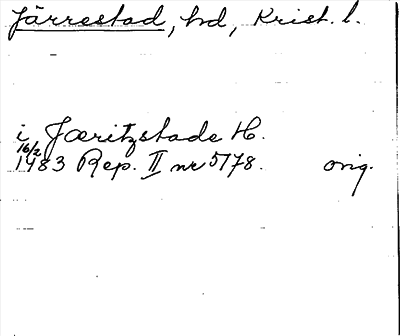 Järrestad, hd, Krist. l.
i Jæritzstade H.
16/2
1483 Rep. II nr 5178. orig.